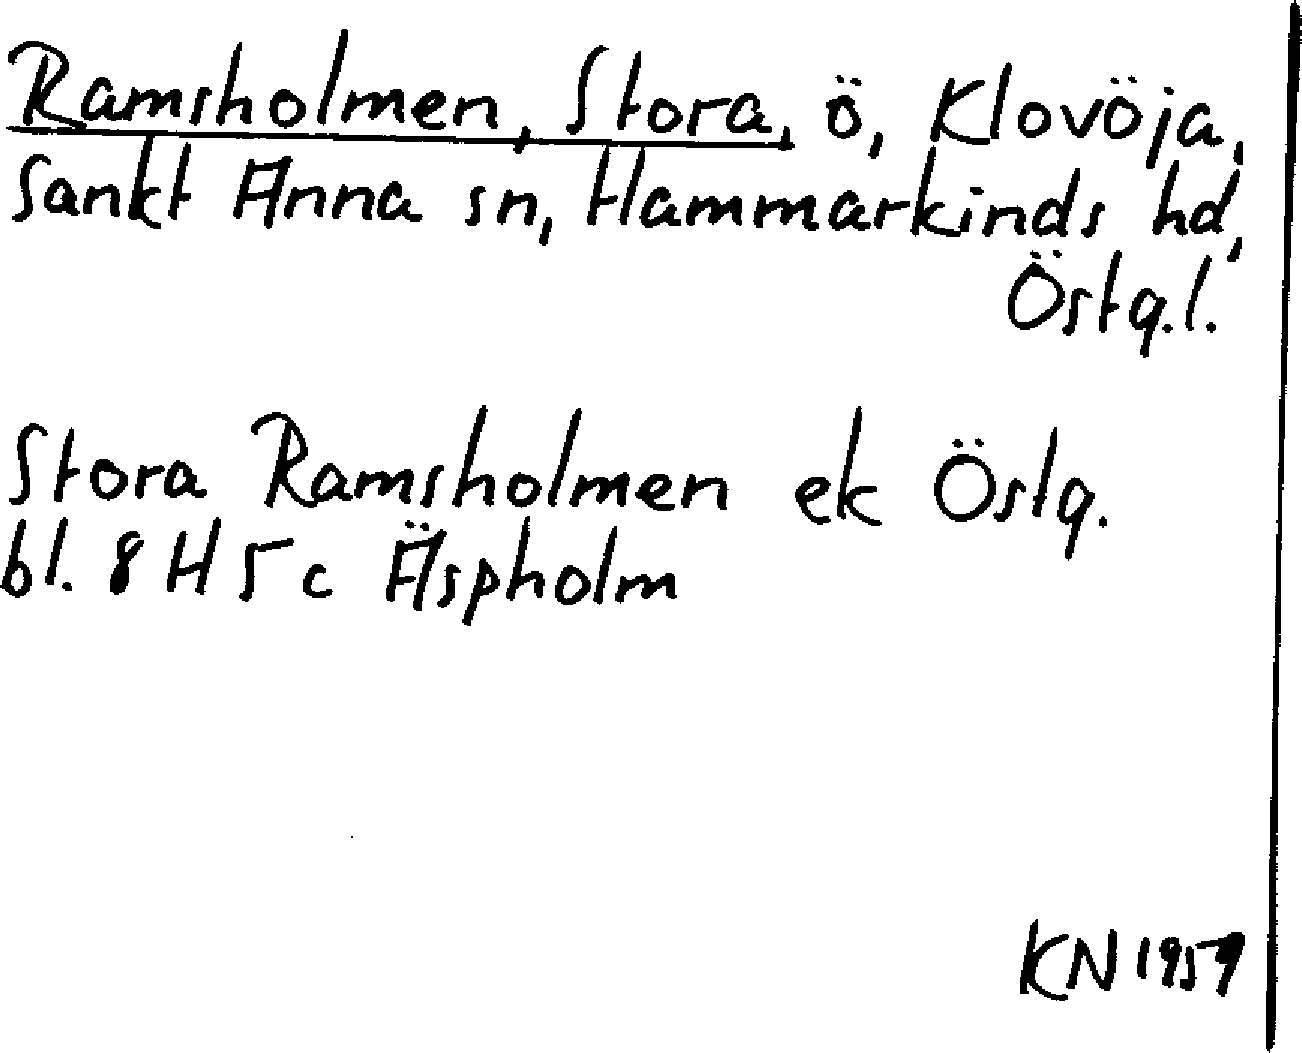 Ramsholmen, Stora, ö, Klovöja,
Sankt Anna sn, Hammarkinds hd,
Östg.l.
Stora Ramsholmen ek Östg.
bl. 8 H 5 c Äspholm
KN 1959